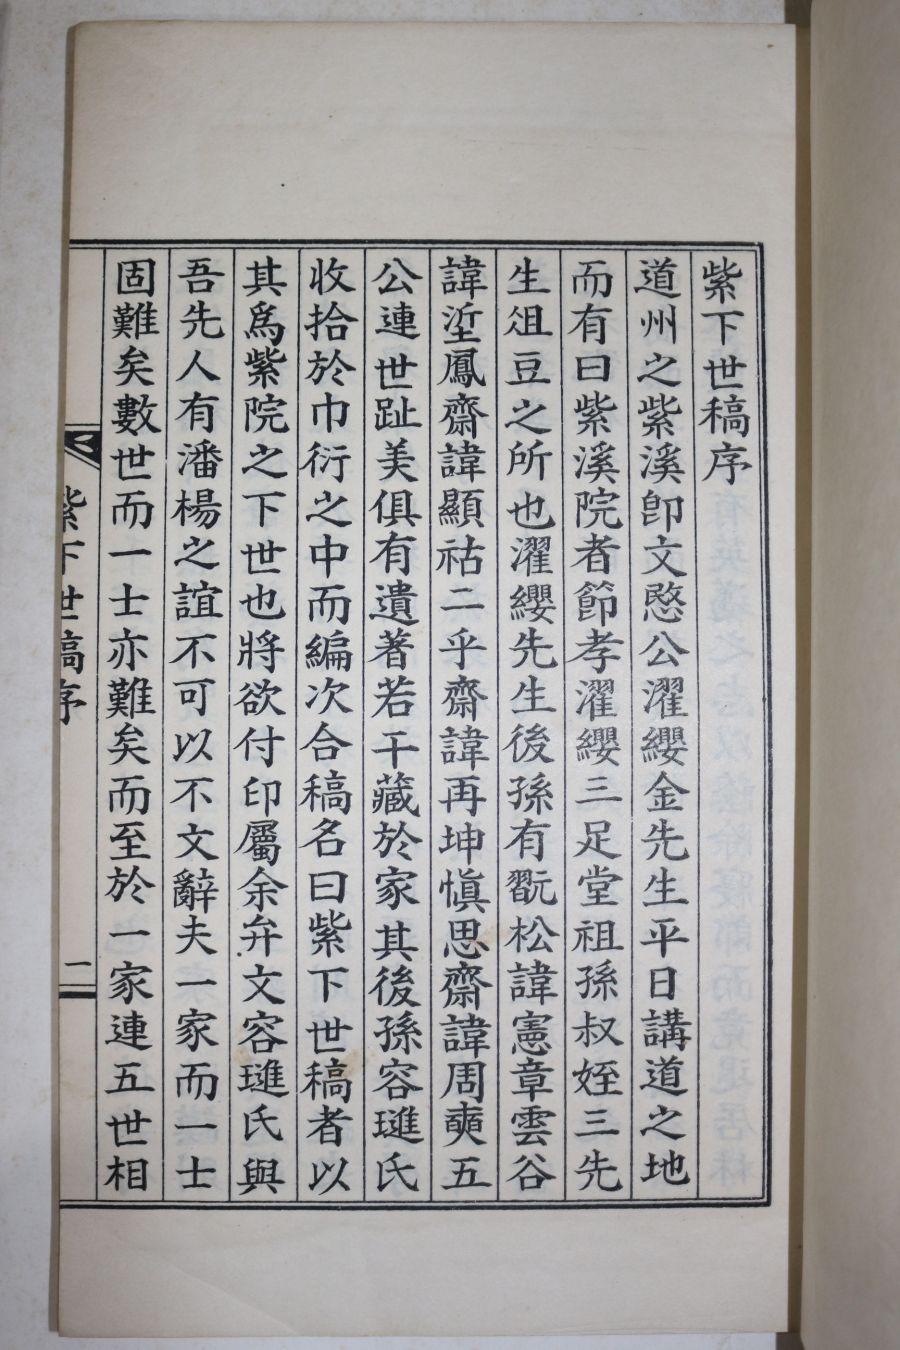 紫下世稿序
道州之紫溪卽文愍公濯纓金先生平日講道之地
而有曰紫溪院者節孝濯纓三足堂祖孫叔姪三先
生俎豆之所也濯纓先生後孫有翫松諱憲章雲谷
諱垽鳳齋諱顯祜二乎齋諱再坤愼思齋諱周奭五
公連世趾美俱有遺著若干藏於家其後孫容璡氏
收拾於巾衍之中而編次合稿名曰紫下世稿者以
其爲紫院之下世也將欲付印屬余弁文容璡氏與
吾先人有潘楊之誼不可以不文辭夫一家而一士
固難矣數世而一士亦難矣而至於一家連五世相
紫下世稿序 一